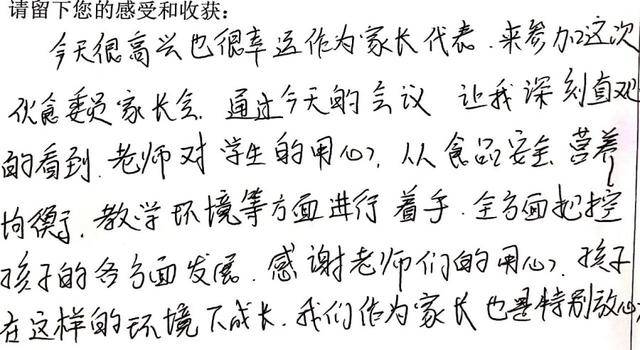 请留下您的感受和收获：
今天很高兴也很幸运作为家长代表.来参加这次
伙食委员家长会.通过今天的会议 让我深刻直观
的看到.老师对学生的用心,从食品安全.营养
均衡,教学环境等方面进行着手.全方面把控
孩子的各方面发展.感谢老师们的用心,孩子
在这样的环境下成长.我们作为家长也是特别放心,